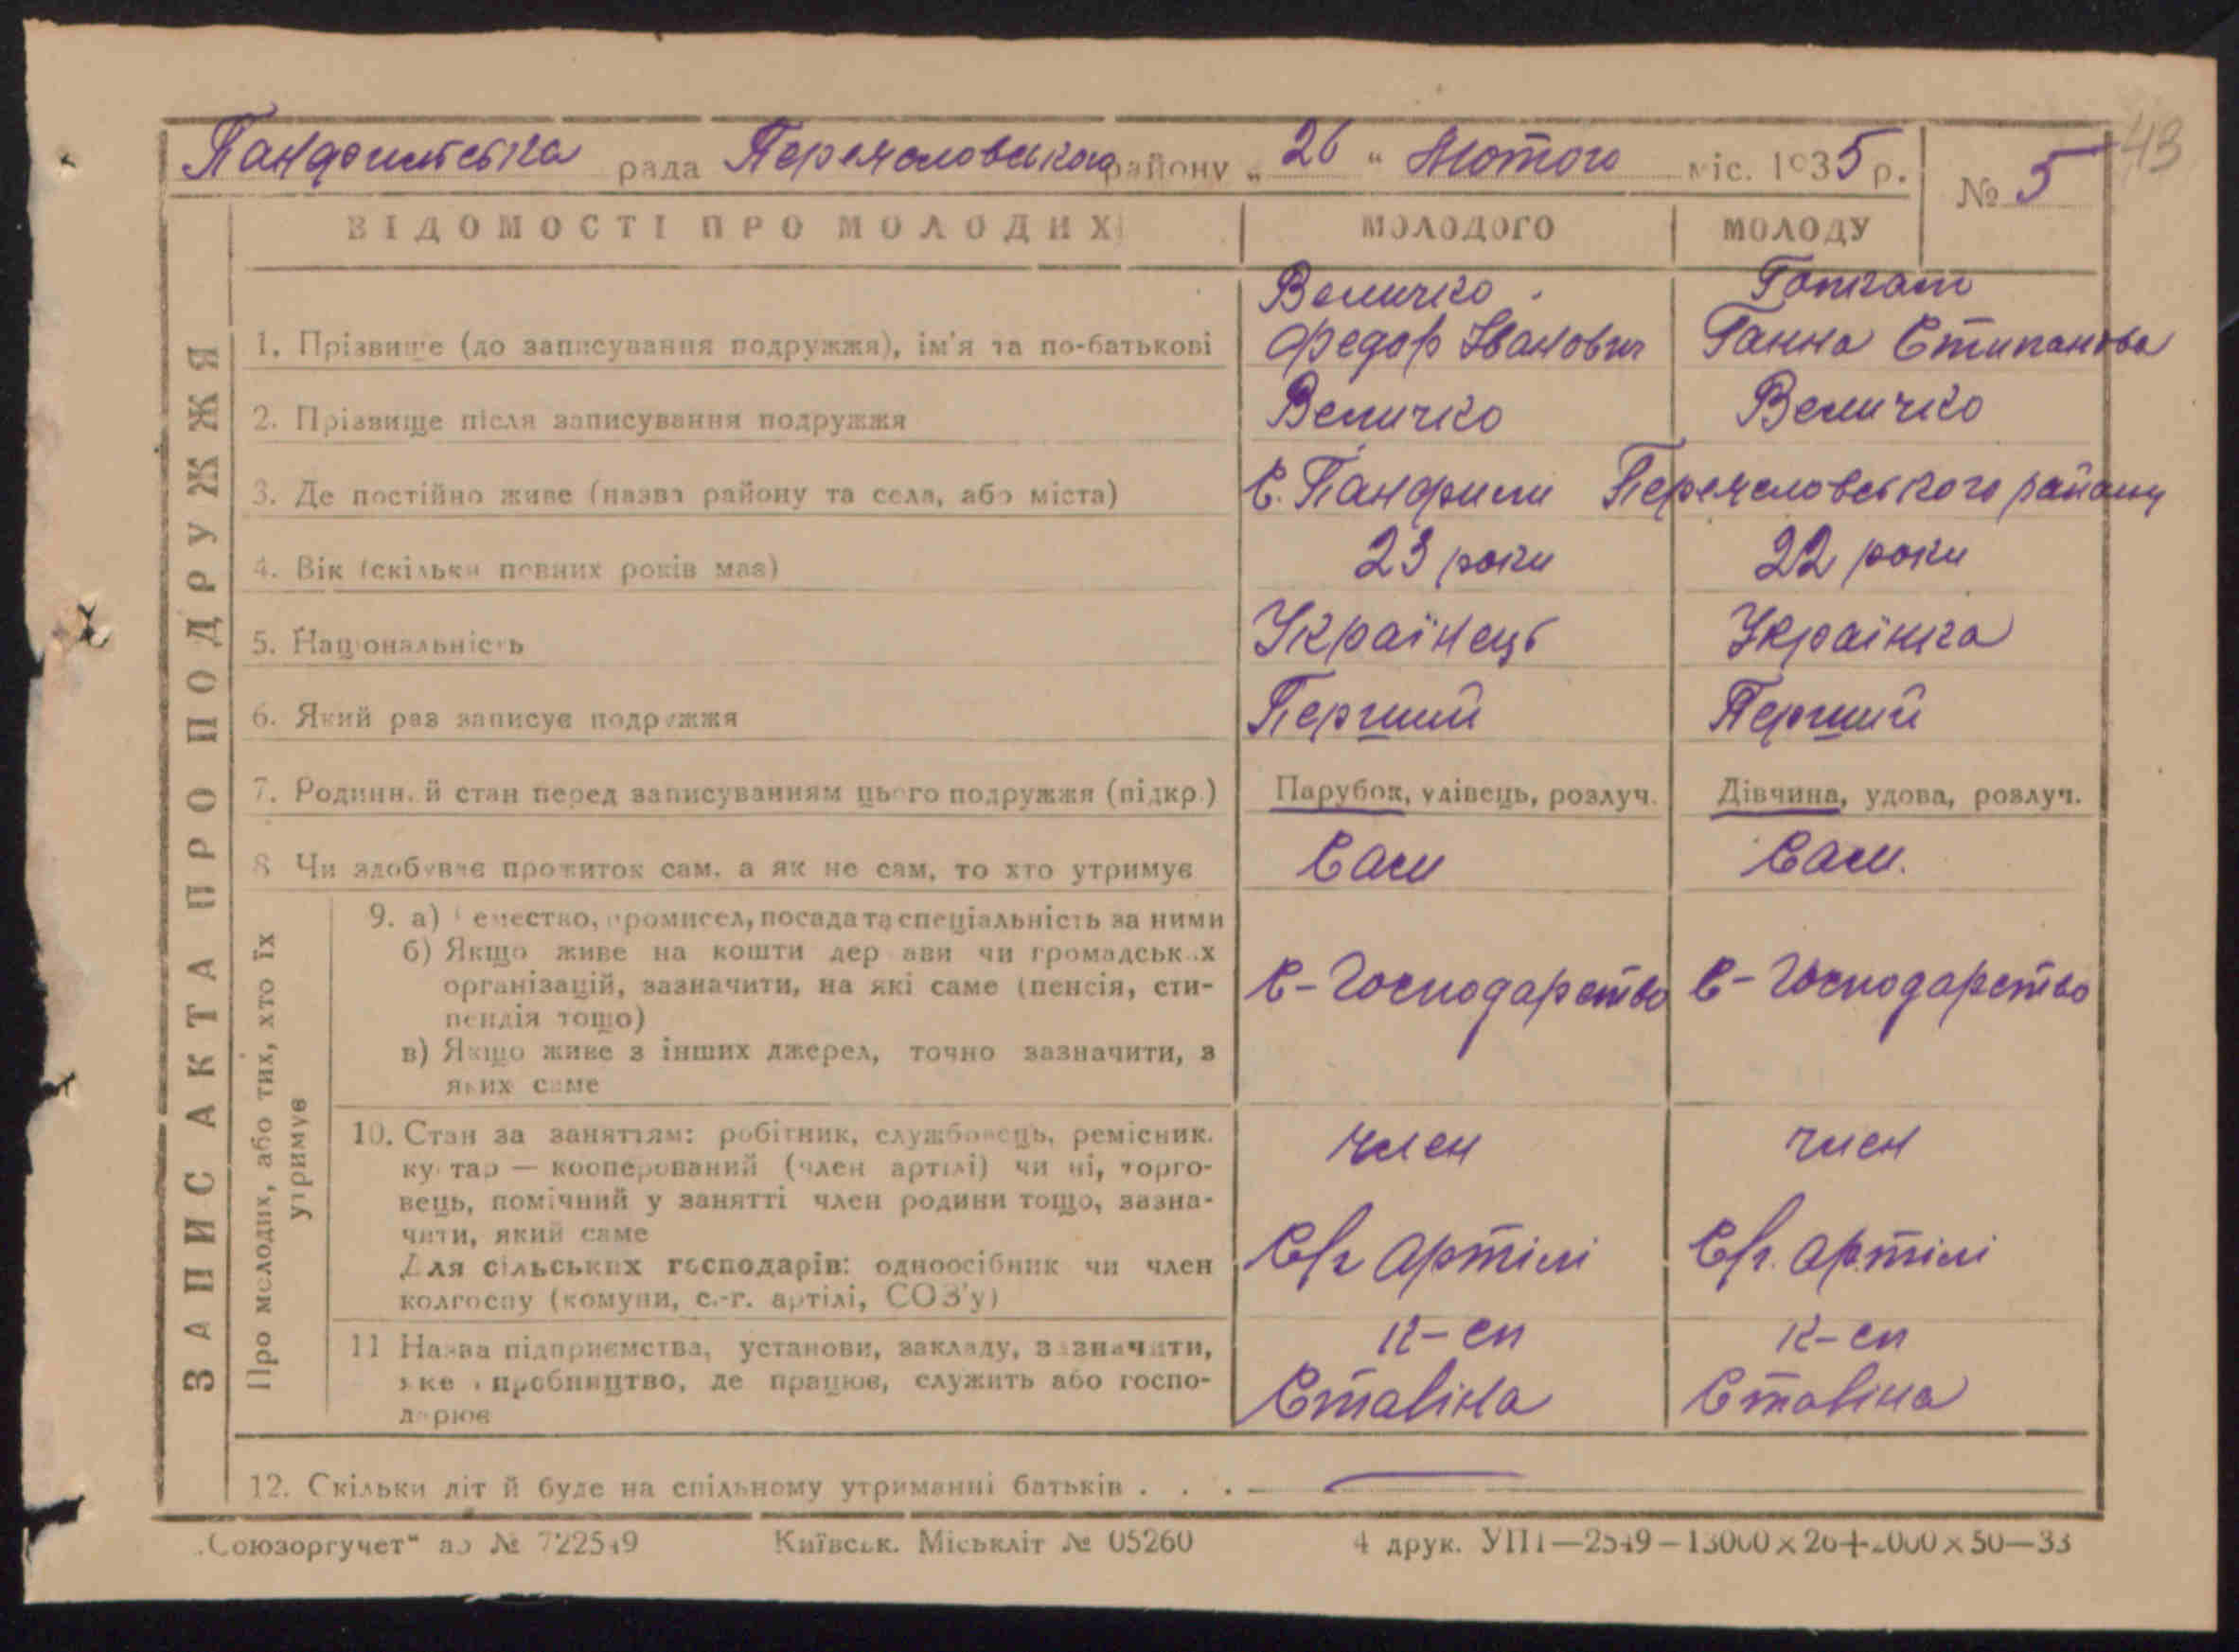 43
Панфильська рада Переясловського району „ 26 “ Лютого міс. 1935 р. № 5
ВІДОМОСТІ ПРО МОЛОДИХ МОЛОДОГО МОЛОДУ
Величко
1. Прізвище (до записування подружжя), ім'я та по-батькові Федор Іванович Ганна Стипанова
2. Прізвище після записування подружжя Величко Величко
3. Де постійно живе (назва району та села, або міста) С. Панфили Переясловського району
4. Вік (скільки повних років має) 23 роки 22 роки
5. Національність Українець Українка
6. Який раз записує подружжя Перший Перший
7. Родинний стан перед записуванням цього подружжя (підкр.) Парубок, удівець, розлуч. Дівчина, удова, розлуч.
8 Чи здобуває прожиток сам, а як не сам, то хто утримує Сам Сам.
ЗАПИС АКТА ПРО ПОДРУЖЖЯ
Про молодих, або тих, хто їх
утримує
9. а) емество, промисел, посада та спеціальність за ними
б) Якщо живе на кошти держави чи громадських
організацій, зазначити, на які саме (пенсія, сти-
пендія тощо)
в) Якщо живе з інших джерел, точно зазначити, з
яких саме
С-Господарство С-Господарство
10. Стан за заняттям: робітник, службовець, ремісник.
кустар — кооперований (член артілі) чи ні, торго-
вець, помічний у занятті член родини тощо, зазна-
чити, який саме
Для сільських господарів: одноосібник чи член
колгоспу (комуни, с.-г. артілі, СОЗ'у)
член член
С/г артілі С/г. артілі
11 Назва підприємства, установи, закладу, зазначити,
яке виробництво, де працює, служить або госпо-
дарює
к-сп к-сп
Сталіна Сталіна
12. Скільки літ й буде на спільному утриманні батьків . . .
„Союзоргучет“ № Київськ. Міськліт № 05260 4 друк. УПП—2549—13000×26+ ×50—33